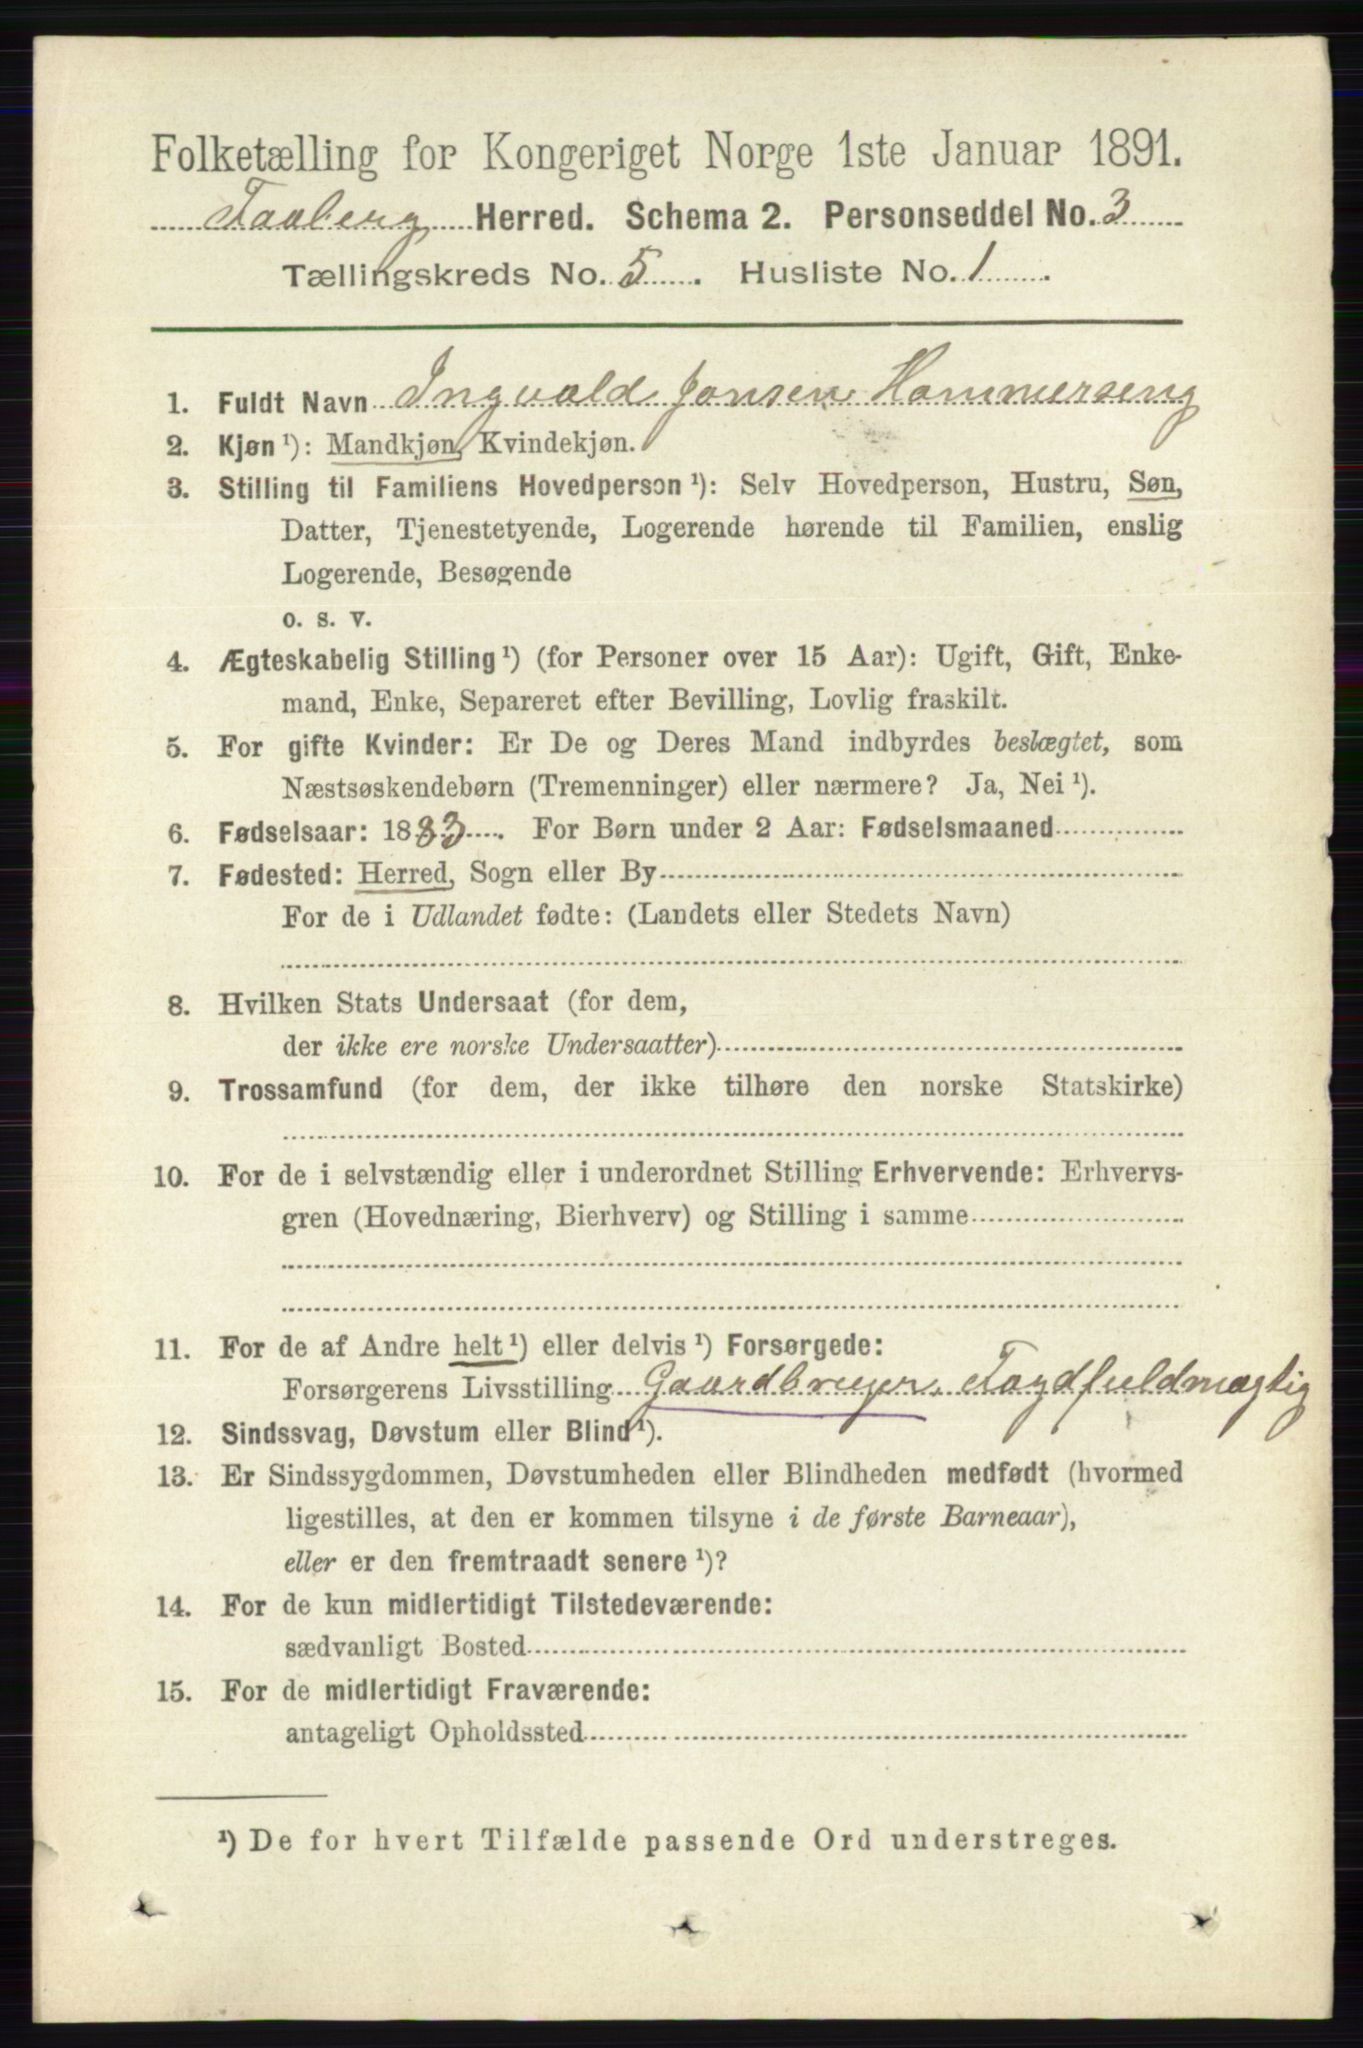 Folketælling for Kongeriget Norge 1ste Januar 1891.
Faaberg Herred. Schema 2. Personseddel No. 3
Tællingskreds No. 5. Husliste No. 1.
1. Fuldt Navn Ingvald Jonsen Hammerseng
2. Kjøn ¹): Mandkjøn, Kvindekjøn.
3. Stilling til Familiens Hovedperson ¹): Selv Hovedperson, Hustru, Søn,
Datter, Tjenestetyende, Logerende hørende til Familien, enslig
Logerende, Besøgende
o. s. v.
4. Ægteskabelig Stilling ¹) (for Personer over 15 Aar): Ugift, Gift, Enke-
mand, Enke, Separeret efter Bevilling, Lovlig fraskilt.
5. For gifte Kvinder: Er De og Deres Mand indbyrdes beslægtet, som
Næstsøskendebørn (Tremenninger) eller nærmere? Ja, Nei ¹).
6. Fødselsaar: 1883. For Børn under 2 Aar: Fødselsmaaned
7. Fødested: Herred, Sogn eller By
For de i Udlandet fødte: (Landets eller Stedets Navn)
8. Hvilken Stats Undersaat (for dem,
der ikke ere norske Undersaatter)
9. Trossamfund (for dem, der ikke tilhøre den norske Statskirke)
10. For de i selvstændig eller i underordnet Stilling Erhvervende: Erhvervs-
gren (Hovednæring, Bierhverv) og Stilling i samme
11. For de af Andre helt ¹) eller delvis ¹) Forsørgede:
Forsørgerens Livsstilling Gaardbruger. Fogdfuldmægtig
12. Sindssvag, Døvstum eller Blind ¹).
13. Er Sindssygdommen, Døvstumheden eller Blindheden medfødt (hvormed
ligestilles, at den er kommen tilsyne i de første Barneaar),
eller er den fremtraadt senere ¹)?
14. For de kun midlertidigt Tilstedeværende:
sædvanligt Bosted
15. For de midlertidigt Fraværende:
antageligt Opholdssted
¹) De for hvert Tilfælde passende Ord understreges.